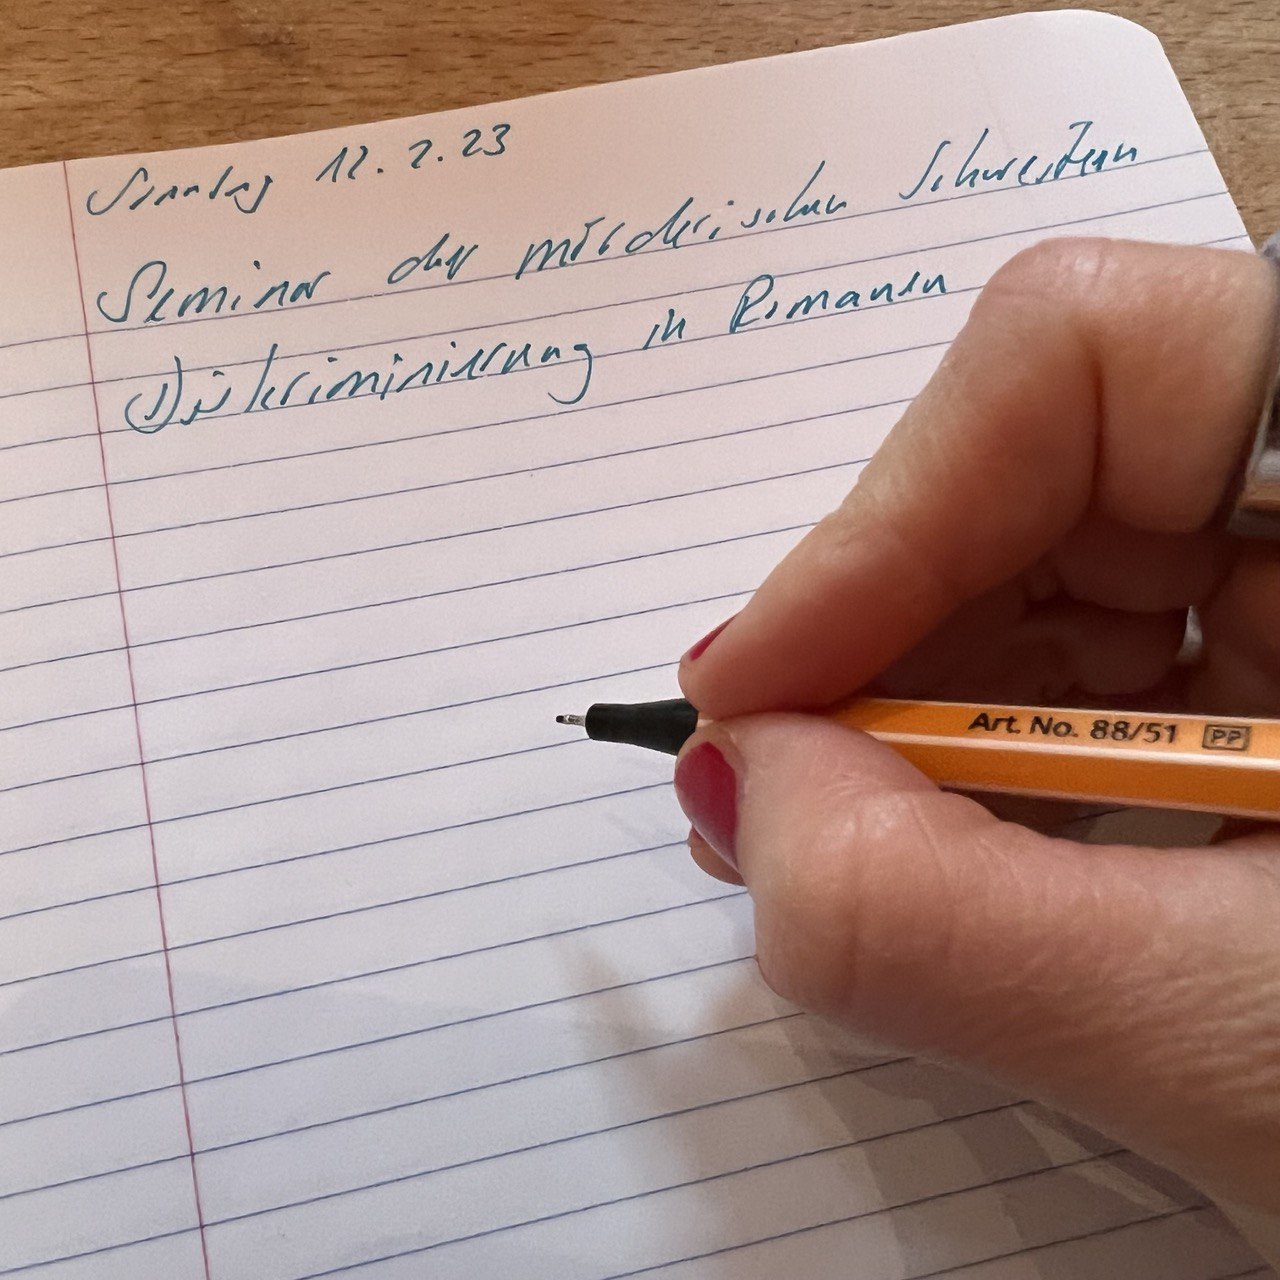 Sonntag 12.2.23
Seminar der mörderischen Schwestern
Diskriminierung in Romanen
Art. No. 88/51 PP